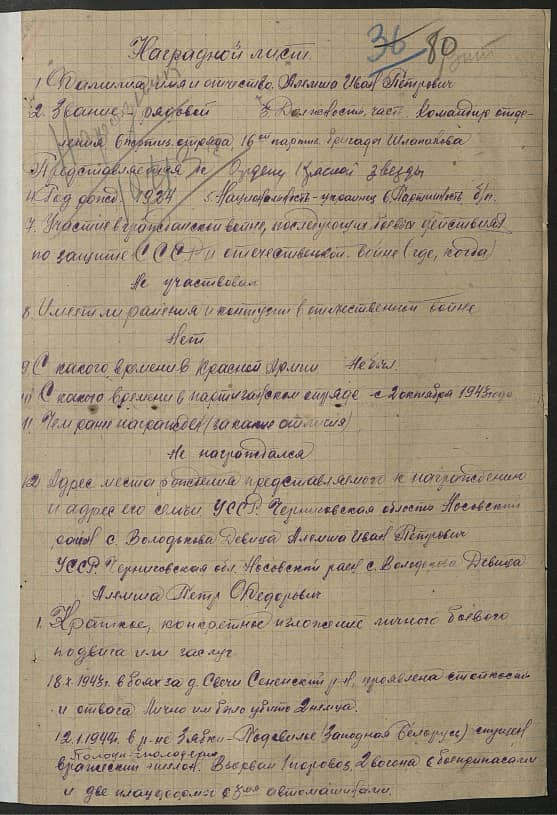 36 80
Наградной лист.
1. Фамилия имя и отчество. Алемша Иван Петрович
2. Звание - рядовой 3. Должность, часть. Командир отде-
ления 6 партиз. отряда, 16ой партиз. бригады Шлапакова
Представляется к Ордену Красной звезды
4. Год рожд. 1924 5. Национальность - украинец 6. Партийность б/п.
7. Участие в гражданской войне, последующих боевых действиях
по защите СССР и отечественной войне (где, когда)
Не участвовал
8. Имеет ли ранения и контузии в отечественной войне
Нет
9. С какого времени в Красной Армии Не был.
10. С какого времени в партизанском отряде - с 2 октября 1943 года
11. Чем ранее награжден (за какие отличия)
Не награждался
12. Адрес места рождения представляемого к награждению
и адрес его семьи УССР. Черниговская область Носовский
район с. Володькова Девица Алемша Иван Петрович
УССР. Черниговская обл. Носовский район с. Володькова Девица
Алемша Петр Федорович
1. Краткое, конкретное изложение личного боевого
подвига или заслуг
18.X.1943г. в боях за д. Свечи Сененский р-н, проявлена стойкость
и отвага. Лично им было убито 2 немца.
12.1.1944г. в р-не Зябки - Подсвилье (Западная Белорус) спущен
вражеский эшелон. Взорван 1 паровоз 2 вагона с боеприпасами
и две платформы с автомашинами.